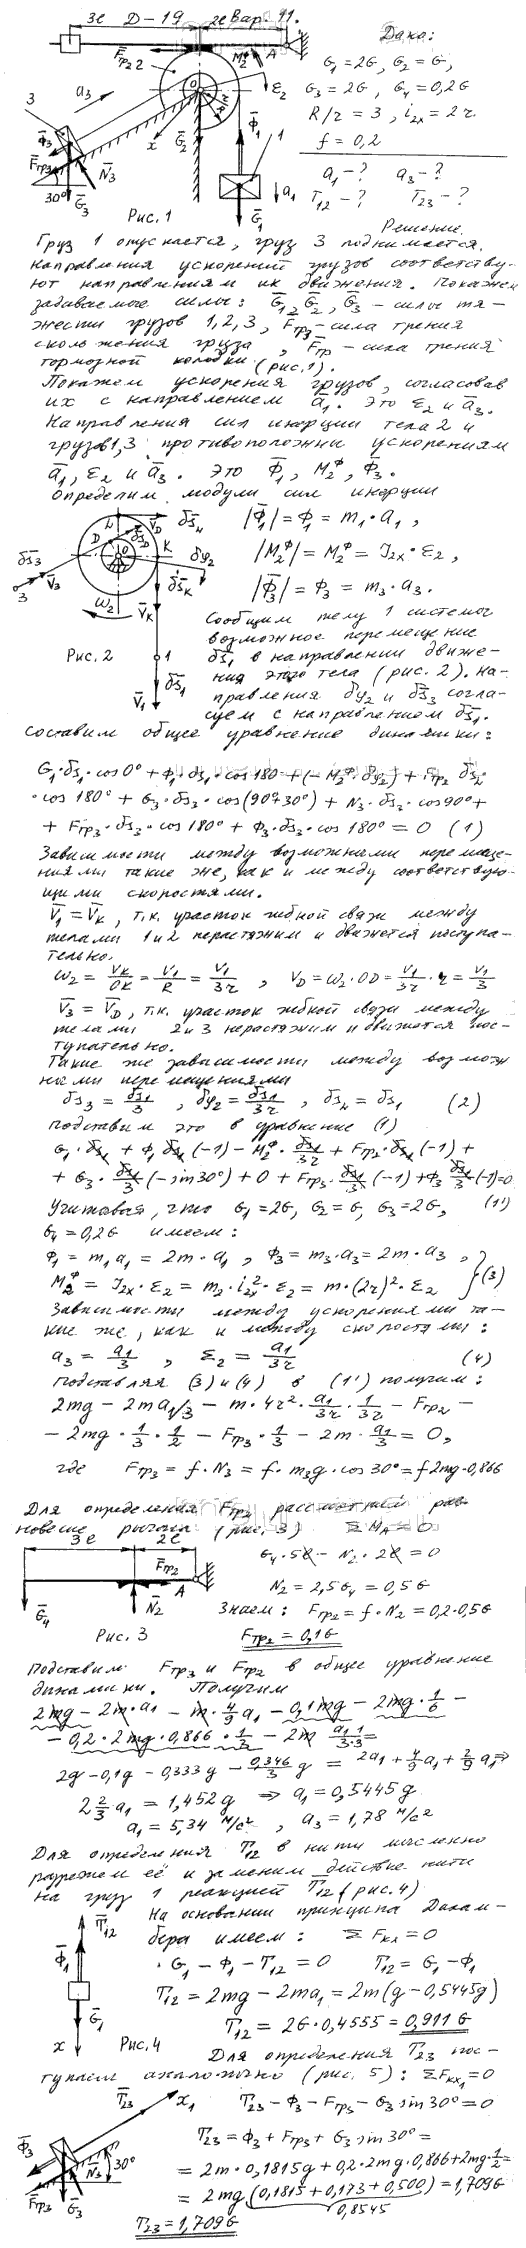 3ℓ Д-19 2ℓ Вар. 11.
Дано:
G₁=2G, G₂=G,
G₃=2G, G₄=0,2G
R/r=3, i₂ₓ=2r.
f=0,2
a₁-? a₃-?
T₁₂-? T₂₃-?
F̄тр2 2 M₂ᶲ A
3 a₃ O R r ε₂
Φ̄₃ F̄тр3 N̄₃ x Ḡ₂ Φ̄₁ 1
30° Ḡ₃ Ḡ₁ a₁
Рис. 1
Решение.
Груз 1 опускается, груз 3 поднимается.
Направления ускорений грузов соответству-
ют направлениям их движения. Покажем
задаваемые силы: Ḡ₁, Ḡ₂, Ḡ₃ - силы тя-
жести грузов 1,2,3, F̄тр3 - сила трения
скольжения груза, F̄тр - сила трения
тормозной колодки (рис.1).
Покажем ускорения грузов, согласовав
их с направлением ā₁. Это ε₂ и ā₃.
Направления сил инерции тела 2 и
грузов 1,3 противоположны ускорениям
ā₁, ε₂ и ā₃. Это Φ̄₁, M₂ᶲ, Φ̄₃.
Определим модули сил инерции
|Φ̄₁| = Φ₁ = m₁·a₁,
|M₂ᶲ| = M₂ᶲ = J₂ₓ·ε₂,
|Φ̄₃| = Φ₃ = m₃·a₃.
V̄_D δS̄ₙ
D δS̄_D O K δφ₂
δS̄₃ V̄₃ 3 δS̄_K
ω₂ V̄_K
1 δS̄₁
V̄₁
Рис. 2
Сообщим телу 1 системы
возможное перемещение
δS̄₁ в направлении движе-
ния этого тела (рис. 2). На-
правления δφ₂ и δS̄₃ согла-
суем с направлением δS̄₁.
Составим общее уравнение динамики:
G₁·δS₁·cos0° + Φ₁·δS₁·cos180 + (-M₂ᶲ·δφ₂) + Fтр2 δSₙ
·cos180° + G₃·δS₃·cos(90°+30°) + N₃·δS₃·cos90° +
+ Fтр3·δS₃·cos180° + Φ₃·δS₃·cos180° = 0 (1)
Зависимости между возможными перемеще-
ниями такие же, как и между соответствую-
щими скоростями.
V̄₁ = V̄_K, т.к. участок гибкой связи между
телами 1 и 2 нерастяжим и движется поступа-
тельно.
ω₂ = V_K/OK = V₁/R = V₁/3r, V_D = ω₂·OD = V₁/3r · r = V₁/3
V̄₃ = V̄_D, т.к. участок гибкой связи между
телами 2 и 3 нерастяжим и движется пос-
тупательно.
Такие же зависимости между возмож-
ными перемещениями
δS₃ = δS₁/3, δφ₂ = δS₁/3r, δSₙ = δS₁ (2)
Подставим это в уравнение (1)
G₁·δS₁ + Φ₁ δS₁(-1) - M₂ᶲ·δS₁/3r + Fтр2·δS₁(-1) +
+ G₃·δS₁/3(-sin30°) + 0 + Fтр3·δS₁/3(-1) + Φ₃ δS₁/3(-1)=0
(1')
Учитывая, что G₁=2G, G₂=G, G₃=2G,
G₄=0,2G имеем:
Φ₁ = m₁a₁ = 2m·a₁, Φ₃ = m₃·a₃ = 2m·a₃,
M₂ᶲ = J₂ₓ·ε₂ = m₂·i₂ₓ²·ε₂ = m·(2r)²·ε₂ } (3)
Зависимости между ускорениями та-
кие же, как и между скоростями:
a₃ = a₁/3, ε₂ = a₁/3r (4)
Подставляя (3) и (4) в (1') получим:
2mg - 2ma₁/3 - m·4r²·a₁/3r·1/3r - Fтр2 -
- 2mg·1/3·1/2 - Fтр3·1/3 - 2m·a₁/3 = 0,
где Fтр3 = f·N₃ = f·m₃g·cos30° = f2mg·0,866
Для определения Fтр2 рассмотрим рав-
новесие рычага (рис. 3) ΣM_A = 0
3ℓ 2ℓ
F̄тр2 A
Ḡ₄ N̄₂
Рис. 3
G₄·5ℓ - N₂·2ℓ = 0
N₂ = 2,5G₄ = 0,5G
Знаем: Fтр2 = f·N₂ = 0,2·0,5G
Fтр2 = 0,1G
Подставим Fтр3 и Fтр2 в общее уравнение
динамики. Получим
2mg - 2m·a₁ - m·4/9 a₁ - 0,1mg - 2mg·1/6 -
- 0,2·2mg·0,866·1/3 - 2m a₁·1/3·3 =
2g - 0,1g - 0,333g - 0,346/3 g = 2a₁ + 4/9 a₁ + 2/9 a₁ ⇒
2 2/3 a₁ = 1,452g ⇒ a₁ = 0,5445g
a₁ = 5,34 м/с², a₃ = 1,78 м/с²
Для определения T₁₂ в нити мысленно
разрежем её и заменим действие нити
на груз 1 реакцией T̄₁₂ (рис. 4)
На основании принципа Далам-
бера имеем: ΣFₖₓ = 0
G₁ - Φ₁ - T₁₂ = 0 T₁₂ = G₁ - Φ₁
T₁₂ = 2mg - 2ma₁ = 2m(g - 0,5445g)
T₁₂ = 2G·0,4555 = 0,911G
T̄₁₂
Φ̄₁
Ḡ₁
x Рис. 4
Для определения T₂₃ пос-
тупаем аналогично (рис. 5): ΣFₖₓ₁ = 0
T̄₂₃ x₁
Φ̄₃ N̄₃ 30°
F̄тр3 Ḡ₃
T₂₃ - Φ₃ - Fтр3 - G₃ sin30° = 0
T₂₃ = Φ₃ + Fтр3 + G₃ sin30° =
= 2m·0,1815g + 0,2·2mg·0,866 + 2mg·1/2 =
= 2mg(0,1815 + 0,173 + 0,500) = 1,709G
0,8545
T₂₃ = 1,709G